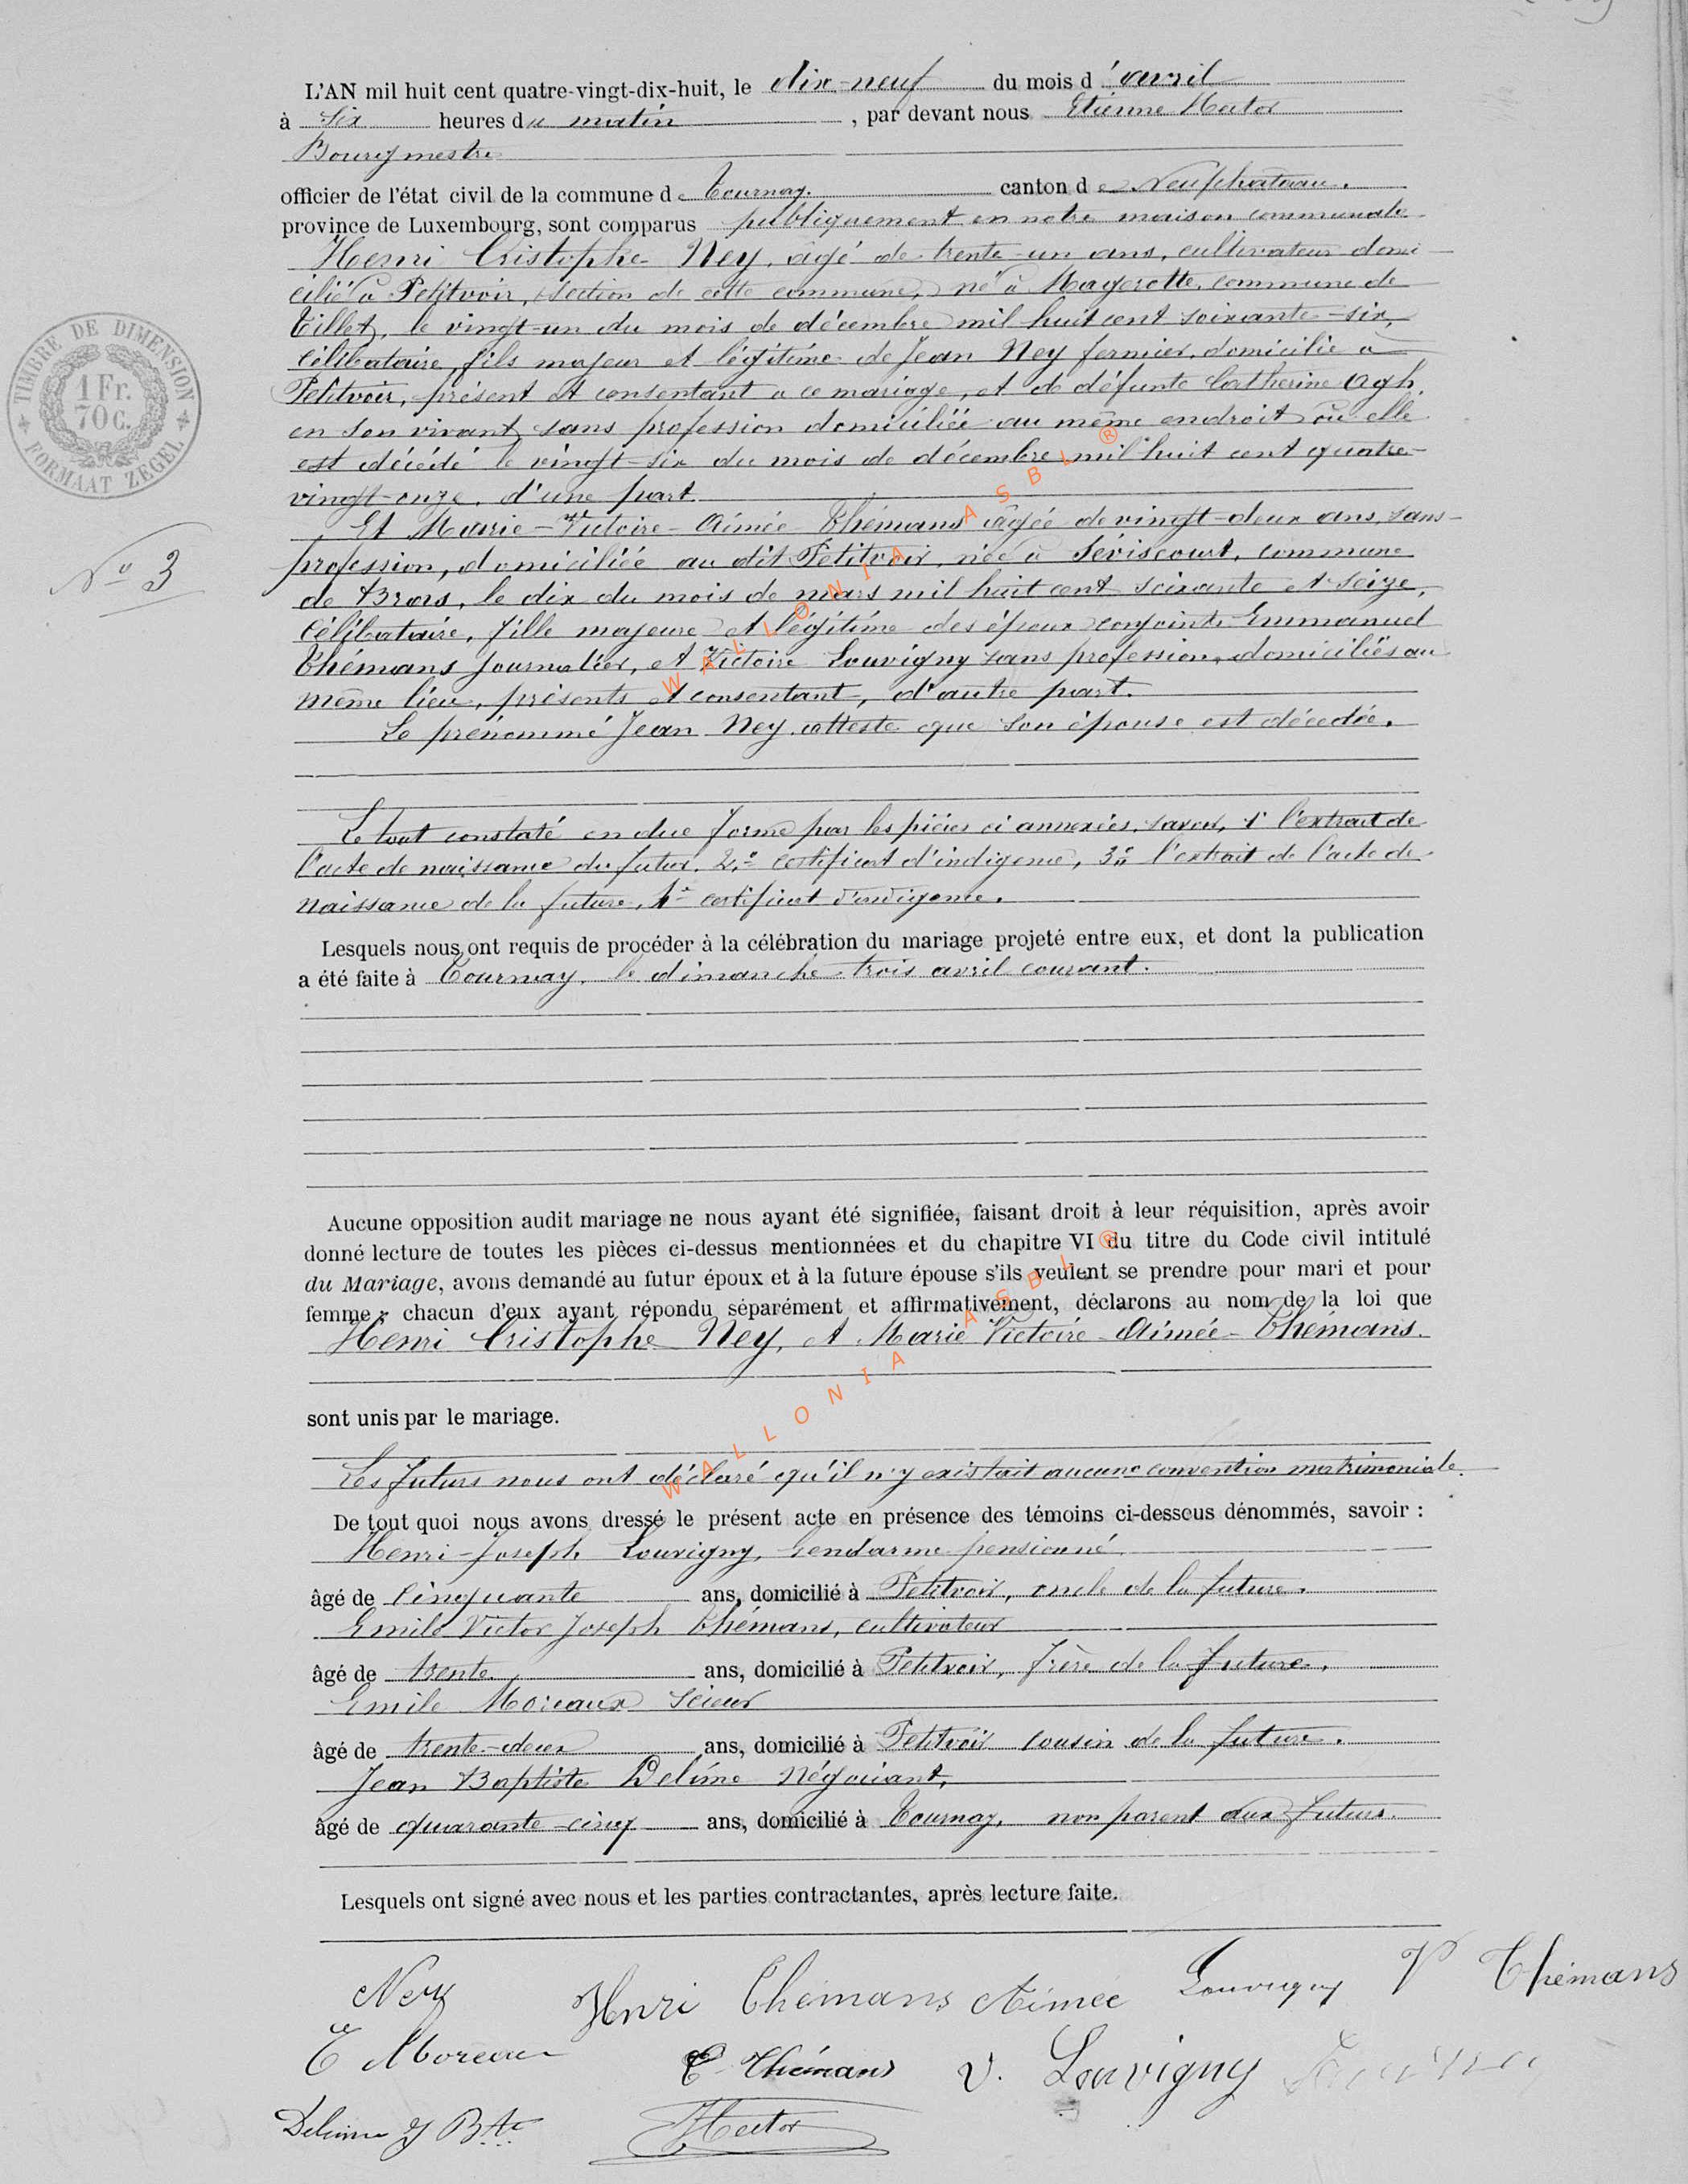 L'AN mil huit cent quatre-vingt-dix-huit, le dix-neuf du mois d'avril
à six heures du matin, par devant nous Etienne Hector
Bourgmestre
officier de l'état civil de la commune de Tournay. canton de Neufchâteau.
province de Luxembourg, sont comparus publiquement en notre maison communale
Henri Cristophe Ney, âgé de trente-un ans, cultivateur domi-
cilié à Petitvoir, section de cette commune, né à Magerotte, commune de
Tillet, le vingt-un du mois de décembre mil huit cent soixante-six,
célibataire, fils majeur et légitime de Jean Ney fermier, domicilié à
Petitvoir, présent et consentant a ce mariage, et de défunte Catherine Agh,
en son vivant, sans profession domiciliée au même endroit où elle
est décédé le vingt-six du mois de décembre mil huit cent quatre-
vingt-onze, d'une part.
Et Marie-Victoire-Aimée Thémans âgée de vingt-deux ans, sans-
profession, domiciliée au dit Petitvoir, née à Séviscourt, commune
de Bras, le dix du mois de mars mil huit cent soixante et seize,
célibataire, fille majeure et légitime des époux conjoints Emmanuel
Thémans journalier, et Victoire Louvigny sans profession, domiciliés au
même lieu, présents et consentant, d'autre part.
Le prénommé Jean Ney, atteste que son épouse est décedée.
Le tout constaté en due forme par les pièces ci annexées, savoir, 1° l'extrait de
l'acte de naissance du futur. 2° certificat d'indigence, 3° l'extrait de l'acte de
naissance de la future, 4° certificat d'indigence.
Lesquels nous ont requis de procéder à la célébration du mariage projeté entre eux, et dont la publication
a été faite à Tournay, le dimanche trois avril courant.
Aucune opposition audit mariage ne nous ayant été signifiée, faisant droit à leur réquisition, après avoir
donné lecture de toutes les pièces ci-dessus mentionnées et du chapitre VI du titre du Code civil intitulé
du Mariage, avons demandé au futur époux et à la future épouse s'ils veulent se prendre pour mari et pour
femme; chacun d'eux ayant répondu séparément et affirmativement, déclarons au nom de la loi que
Henri Cristophe Ney, et Marie Victoire-Aimée-Thémans.
sont unis par le mariage.
Les futurs nous ont déclaré qu'il n'y existait aucune convention matrimoniale.
De tout quoi nous avons dressé le présent acte en présence des témoins ci-dessous dénommés, savoir :
Henri-Joseph Louvigny, Gendarme pensionné
âgé de cinquante ans, domicilié à Petitvoir, oncle de la future.
Emile Victor Joseph Thémans, cultivateur
âgé de trente ans, domicilié à Petitvoir, frère de la future.
Emile Moreaux scieur
âgé de trente-deux ans, domicilié à Petitvoir cousin de la future.
Jean Baptiste Delime Négociant,
âgé de quarante-cinq ans, domicilié à Tournay, non parent aux futurs.
Lesquels ont signé avec nous et les parties contractantes, après lecture faite.
Ney Henri Thémans Aimée Louvigny V Thémans
E Moreau E Thémans V. Louvigny
Delime J Bte Hector
TIMBRE DE DIMENSION
1 Fr.
70 C.
FORMAAT ZEGEL
N° 3
WALLONIA ASBL ®
WALLONIA ASBL ®